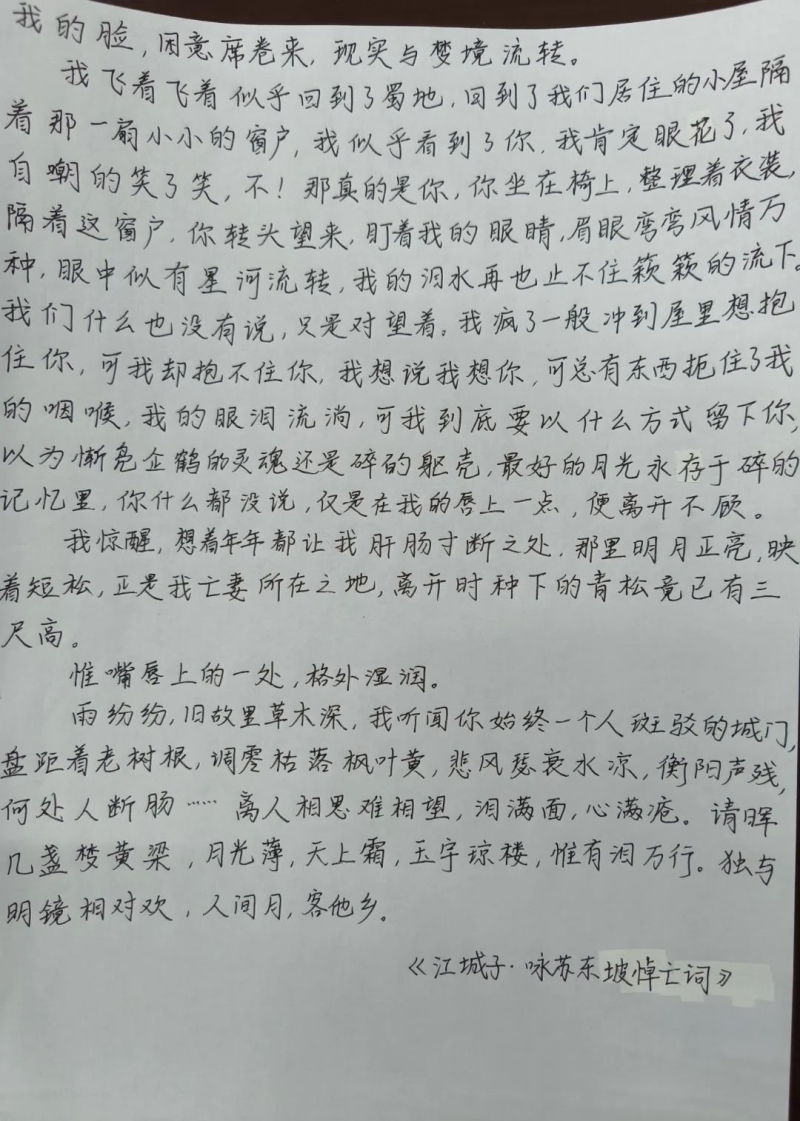 我的脸，困意席卷来，现实与梦境流转。
我飞着飞着似乎回到了蜀地，回到了我们居住的小屋隔
着那一扇小小的窗户，我似乎看到了你，我肯定眼花了，我
自嘲的笑了笑，不！那真的是你，你坐在椅上，整理着衣装，
隔着这窗户，你转头望来，盯着我的眼睛，眉眼弯弯风情万
种，眼中似有星河流转，我的泪水再也止不住簌簌的流下。
我们什么也没有说，只是对望着。我疯了一般冲到屋里想抱
住你，可我却抱不住你，我想说我想你，可总有东西扼住了我
的咽喉，我的眼泪流淌，可我到底要以什么方式留下你，
以为惭凫企鹤的灵魂还是碎的躯壳，最好的月光永存于碎的
记忆里，你什么都没说，仅是在我的唇上一点，便离开不顾。
我惊醒，想着年年都让我肝肠寸断之处，那里明月正亮，映
着短松，正是我亡妻所在之地，离开时种下的青松竟已有三
尺高。
惟嘴唇上的一处，格外湿润。
雨纷纷，旧故里草木深，我听闻你始终一个人斑驳的城门，
盘距着老树根，凋零枯落枫叶黄，悲风瑟衰水凉，衡阳声残，
何处人断肠……离人相思难相望，泪满面，心满疮。请晖
几盏梦黄梁，月光薄，天上霜，玉宇琼楼，惟有泪万行。独与
明镜相对欢，人间月，客他乡。
《江城子·咏苏东坡悼亡词》